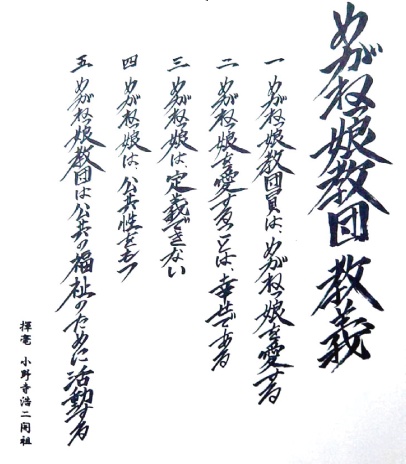 めがね娘教団 教義
一 めがね娘教団員は、めがね娘を愛する
二 めがね娘を愛することは、幸せである
三 めがね娘は、定義できない
四 めがね娘は、公共性をもつ
五 めがね娘教団は公共の福祉のために活動する
揮毫 小野寺浩二開祖